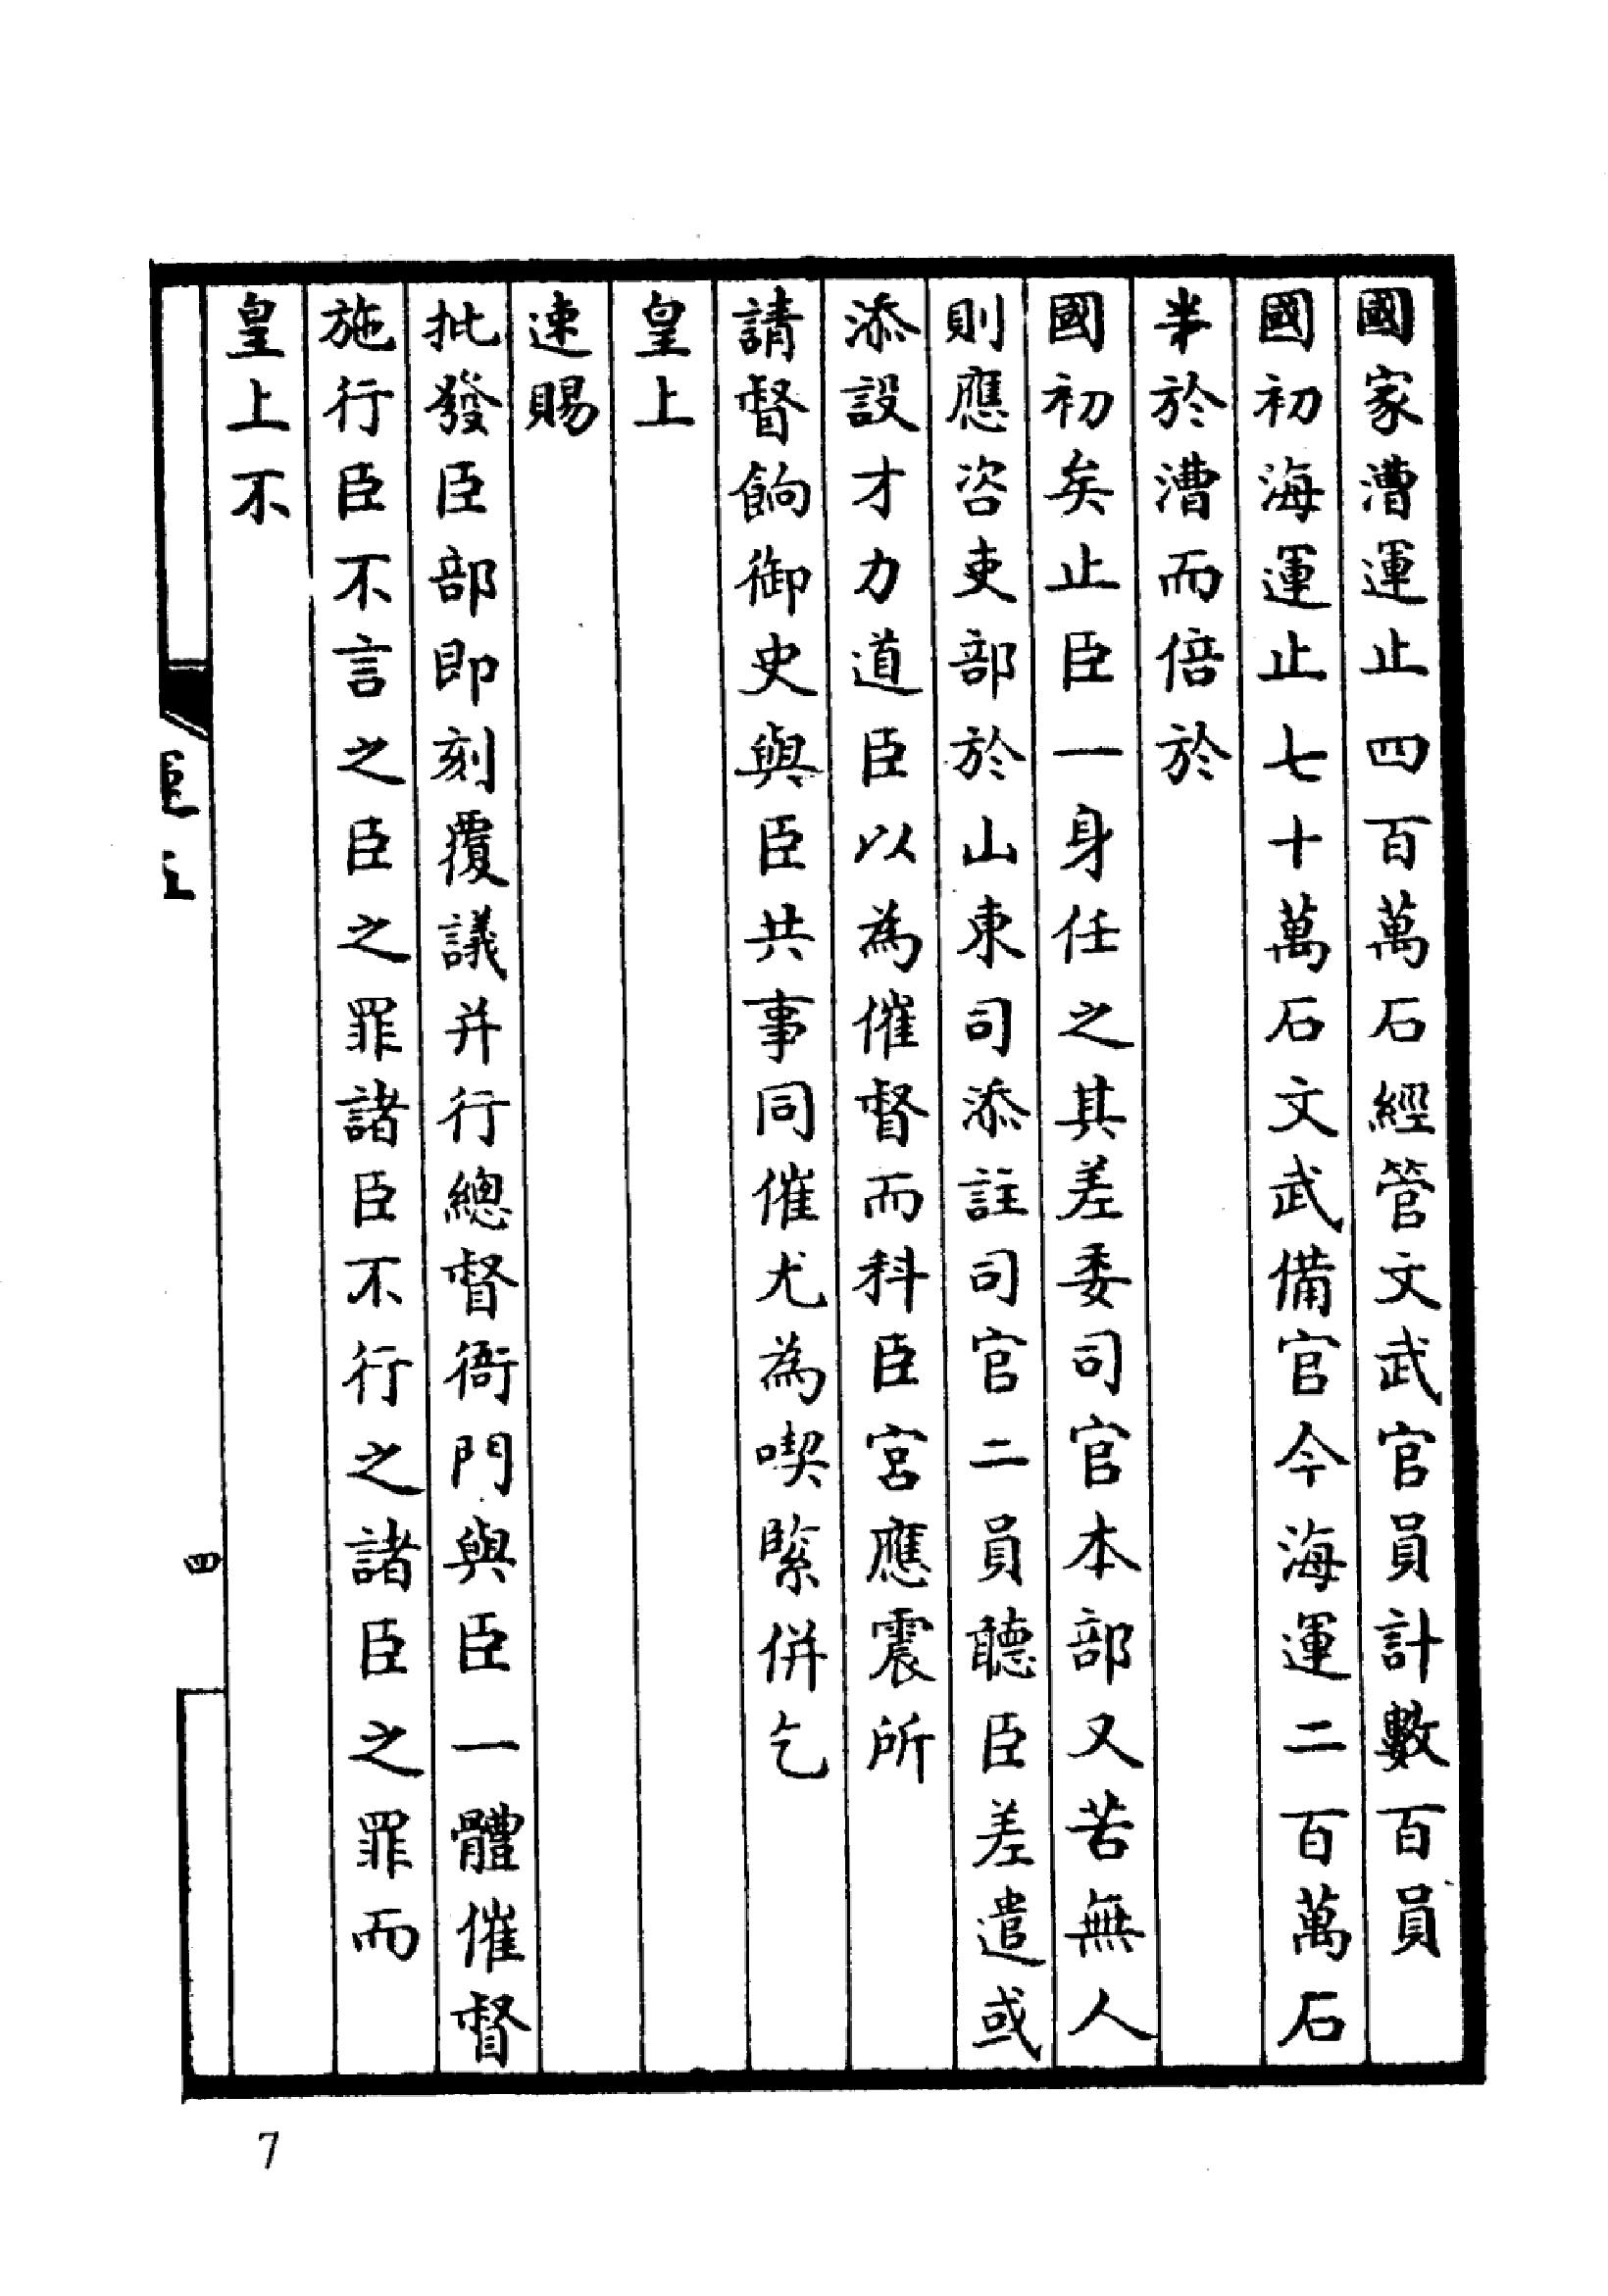 國家漕運止四百萬石經管文武官員計數百員
國初海運止七十萬石文武備官今海運二百萬石
半於漕而倍於
國初矣止臣一身任之其差委司官本部又苦無人
則應咨吏部於山東司添註司官二員聽臣差遣或
添設才力道臣以為催督而科臣宮應震所
請督餉御史與臣共事同催尤為喫緊併乞
皇上
速賜
批發臣部即刻覆議并行總督衙門與臣一體催督
施行臣不言之臣之罪諸臣不行之諸臣之罪而
皇上不
四
7